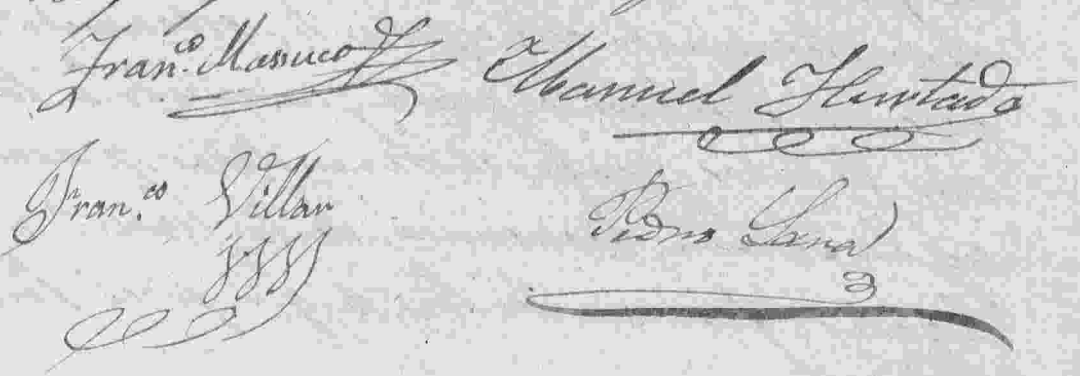 Fran.co Massuco Manuel Hurtado
Fran.co Villar Pedro Sana